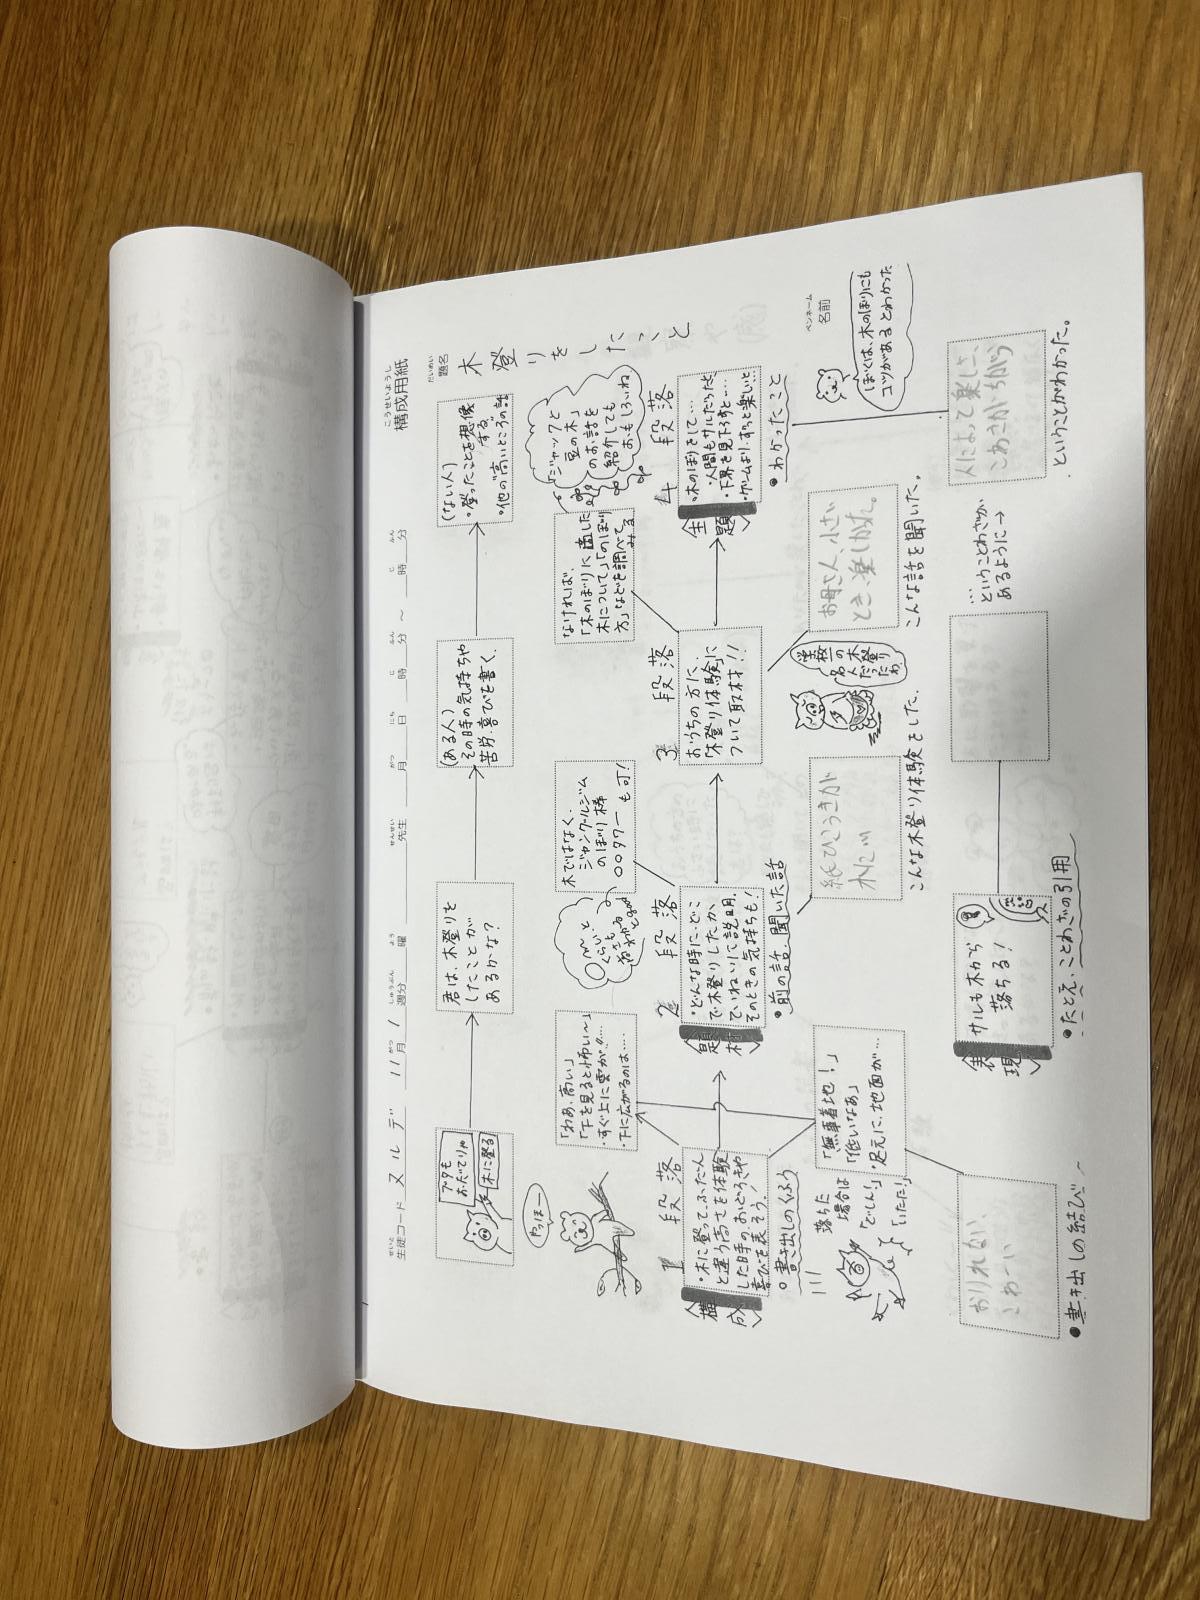 こうせいようし
構成用紙
だいめい
題名
木登りをしたこと
ペンネーム
名前
せいと
生徒コード ヌルデ 11月1週分 曜 先生 月 日 時 分 ～ 時 分
がつ しゅうぶん よう せんせい がつ にち じ ふん じ ふん
ブタも
おだてりゃ
木に登る
君は、木登りを
したことが
あるかな?
(ある人)
その時の気持ちや
苦労・喜びを書く。
(ない人)
・登ったことを想像
する。
・他の高いところの話
やっほー
「わあ、高い」
「下を見ると怖い〜」
・すぐ上に雲が!!…
・下に広がるのは…
木ではなく、
ジャングールジム
のぼり棒
○○タワー も可!
なければ、
「木のぼりに適した
木について」「のぼり
方」などを調べて
みる
「ジャックと
豆の木」
のお話を
紹介しても
おもしろいね
1 段落
〈構成〉
・木に登って、ふだん
と違う高さを体験
した時の、おどろきや
喜びを表そう。
○書き出しのくふう
2 段落
〈題材〉
・どんな時に・どこ
で・木登りしたか、
ていねいに説明。
そのときの気持ちも!
●前の話、聞いた話
3 段落
おうちの方に、
「木登り体験」に
ついて取材!!
4 段落
〈主題〉
・木のぼりをして…
・人間もサルだったと…
・下界を見下ろすと…
・ゲームより、ずっと楽しいと…
●わかったこと
ぼくは、木のぼりにも
コツがあるとわかった
落ちた
場合は
「どしん!」
「いたた!」
「無事着地!」
「低いなあ」
・足元に、地面が…
紙ひこうきが
木に
こんな木登り体験をした。
学校一の
木登り
名人
だった
わ
お母さん、小さい
とき、楽しかた。
こんな話を聞いた。
おりれない、
こわーい
●書き出しの結び
〈表現〉
サルも木から
落ちる!
●たとえ、ことわざの引用
…ということわざが
あるように→
人によって楽しさ、
こわさがちがう
ということがわかった。